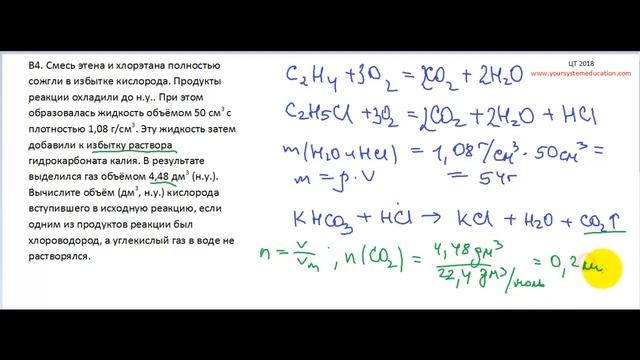 В4. Смесь этена и хлорэтана полностью
сожгли в избытке кислорода. Продукты
реакции охладили до н.у.. При этом
образовалась жидкость объёмом 50 см³ с
плотностью 1,08 г/см³. Эту жидкость затем
добавили к избытку раствора
гидрокарбоната калия. В результате
выделился газ объёмом 4,48 дм³ (н.у.).
Вычислите объём (дм³, н.у.) кислорода
вступившего в исходную реакцию, если
одним из продуктов реакции был
хлороводород, а углекислый газ в воде не
растворялся.
ЦТ 2018
www.yoursystemeducation.com
C₂H₄ + 3O₂ = 2CO₂ + 2H₂O
C₂H₅Cl + 3O₂ = 2CO₂ + 2H₂O + HCl
m(H₂O и HCl) = 1,08 г/см³ · 50 см³ =
m = ρ · V = 54 г
KHCO₃ + HCl → KCl + H₂O + CO₂↑
n = V/Vm ; n(CO₂) = 4,48 дм³ / 22,4 дм³/моль = 0,2